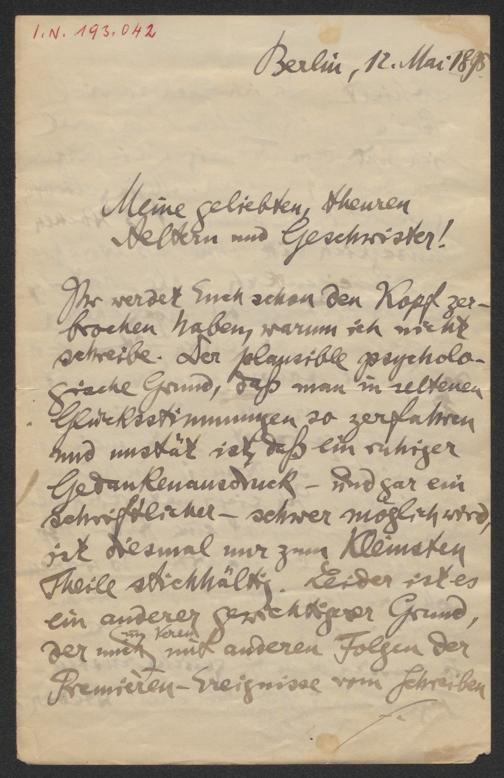 I.N. 193.042
Berlin, 12. Mai 1895
Meine geliebten, theuren
Aeltern und Geschwister!
Ihr werdet Euch schon den Kopf zer-
brochen haben, warum ich nicht
schreibe. Der plausible psycholo-
gische Grund, daß man in seltenen
Glücksstimmungen so zerfahren
und unstät ist, daß ein ruhiger
Gedankenausdruck – und gar ein
schriftlicher – schwer möglich wird,
ist diesmal nur zum Kleinsten
Theile stichhältig. Leider ist es
ein anderer gewichtigerer Grund,
der mich mit anderen Folgen der
Premièren-Ereignisse vom Schreiben